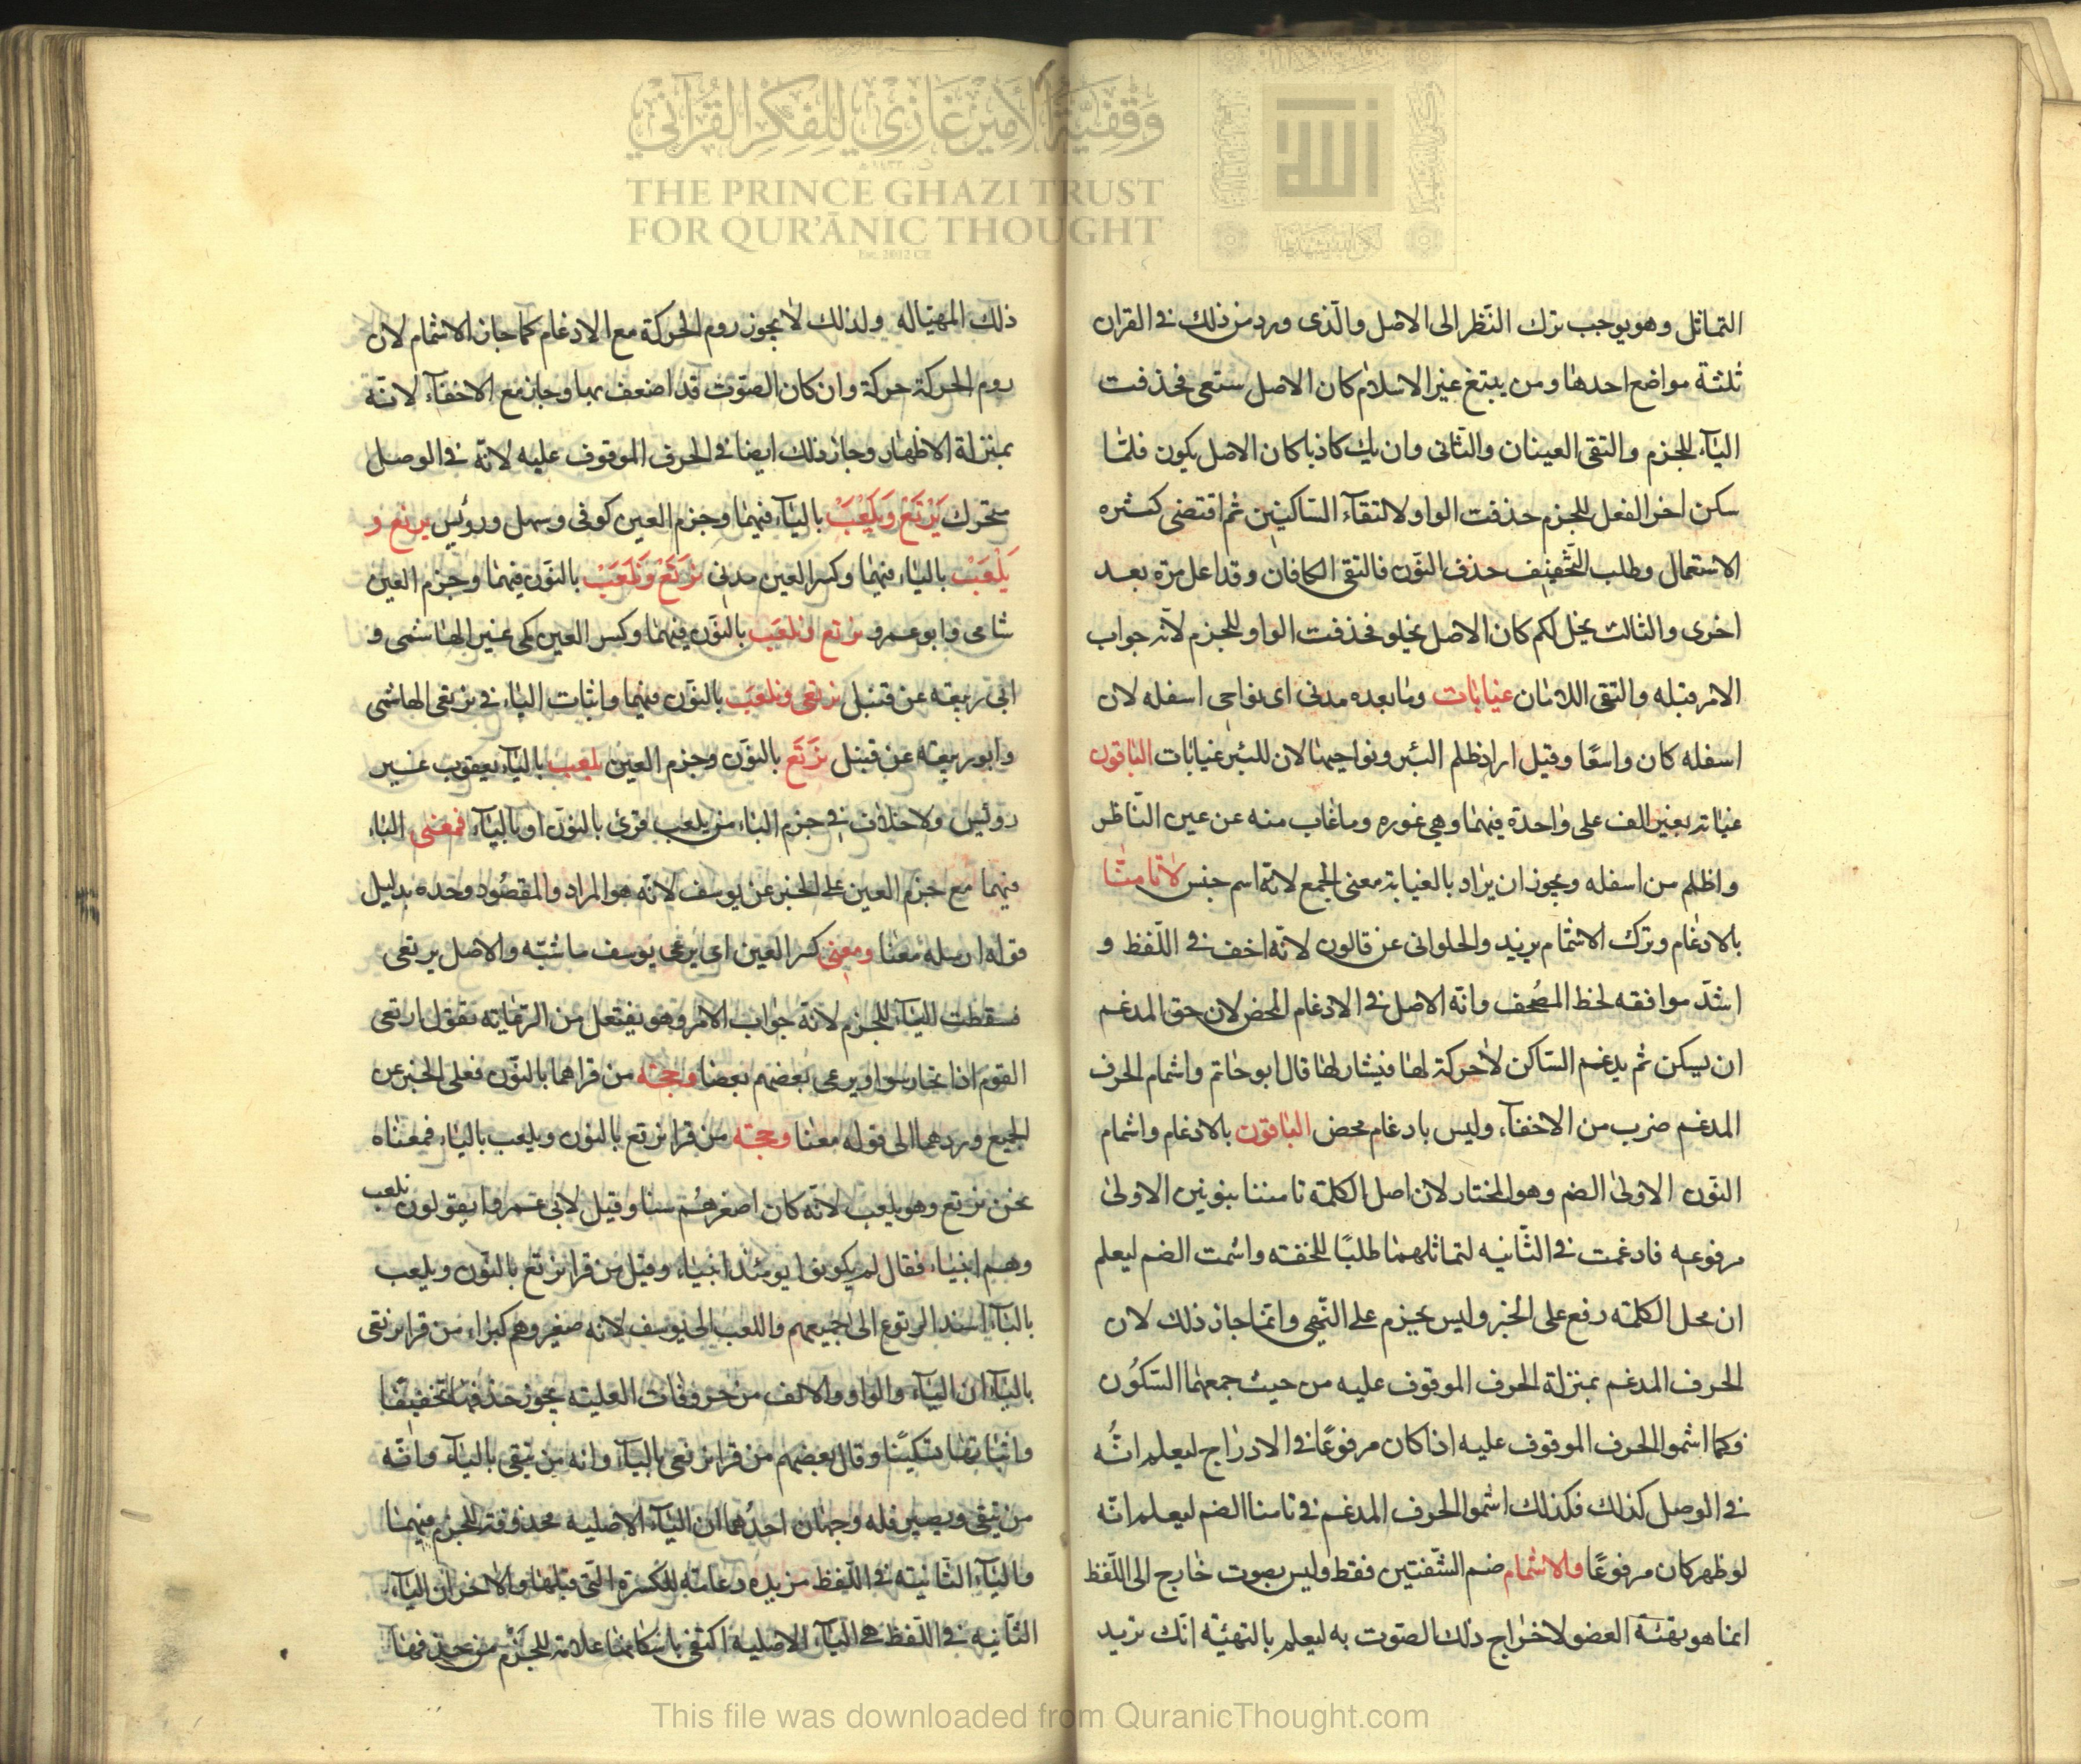 وقفية الأمير غازي للفكر القرآني
THE PRINCE GHAZI TRUST
FOR QUR'ĀNIC THOUGHT
Est. 2012 CE
التماثل وهو يوجب ترك النّظر الى الاصل والّذى ورد من ذلك فى القران
ثلثة مواضع احدها ومن يبتغ غير الاسلام كان الاصل ستعى فحذفت
اليآء للجزم والتقى العينان والثانى وان يك كاذبا كان الاصل يكون فلمّا
سكن اخر الفعل للجزم حذفت الواو لالتقآء السّاكنين ثم اقتضى كثره
الاستعمال وطلب التّخفيف حذف النّون فالتقى الكافان وقد اعل مرّه بعد
اخرى والثالث يخل لكم كان الاصل يخلو فحذفت الواو للجزم لانّه جواب
الامر قبله والتقى اللامان غيابات وما بعده مدنى اى نواحى اسفله لان
اسفله كان واسعًا وقيل اراد ظلم البئر ونواحيها لان للبئر غيابات الباقون
غيابة بغير الف على واحدة فيهما وهى غوره وما غاب منه عن عين النّاظر
واظلم من اسفله ويجوز ان يراد بالغيابة معنى الجمع لانّه اسم جنس لا تامنّا
بالادغام وترك الاشمام يزيد والحلوانى عن قالون لانّه اخف فى اللّفظ و
اشدّ موافقه لخط المصُحف وانّه الاصل فى الادغام المحض لان حق المدغم
ان يسكن ثم يدغم السّاكن لا حركة لها فيشار لها قال ابو حاتم واشمام الحرف
المدغم ضرب من الاخفآء وليس بادغام محض الباقون بالادغام واشمام
النّون الاولى الضم وهو المختار لان اصل الكلمة تامننا بنونين الاولى
مرفوعه فادغمت فى الثّانيه لتماثلهما طلبًا للخفته واشمت الضم ليعلم
ان محل الكلمته رفع على الخبر وليس بجزم على النّهى وانّما جاز ذلك لان
الحرف المدغم بمنزلة الحرف الموقوف عليه من حيث جمعهما السّكُون
فكما اشموا الحرف الموقوف عليه اذا كان مرفوعًا فى الادراج ليعلم انّه
فى الوصل كذلك فكذلك اشموا الحرف المدغم فى تامنا الضم ليعلم انّه
لو ظهر كان مرفوعًا والاشمام ضم الشّفتين فقط وليس بصوت خارج الى اللّفظ
انما هو تهيئة العضو لاخراج ذلك الصّوت به ليعلم بالتهيئة انّك تريد
ذلك المهيّا له ولذلك لا يجوز روم الحركة مع الادغام كما جاز الاشمام لان
روم الحركة حركة وان كان الصّوت قد اضعف بها وجاز مع الاخفآء لانّه
بمنزلة الاظهار وجاز ذلك ايضا فى الحرف الموقوف عليه لانّه فى الوصل
متحرك يَرْتَعْ وَيَلْعَبْ باليآء فيهما وجزم العين كوفى وسهل ورويس يرتع و
يَلْعَبْ باليآء فيهما وكسر العين مدنى نَرْتَعْ وَنَلْعَبْ بالنّون فيهما وجزم العين
شامى وابو عمرو نرتع ونلعب بالنّون فيهما وكسر العين مكى غير الهاشمى و
ابى ربيعة عن قنبل نرتعى ونلعب بالنّون فيهما واثبات الياء فى نرتعى الهاشمى
وابو ربيعة عن قنبل نَرْتَع بالنّون وجزم العين يلعب باليآء يعقوب غير
رويس ولا خلاف فى جزم الباء من يلعب قرئ بالنون او باليآء فمعنى الياء
فيهما مع جزم العين على الخبر عن يوسف لانّه هو المراد والمقصُود وحده بدليل
قوله ارسله معنا ومعنى كسر العين اى يرعى يوسف ماشيته والاصل يرتعى
فسقطت اليآء للجزم لانّه جواب الامر وهو يفتعل من الرّعاية تقول ارتعى
القوم اذا تحارسوا ويرعى بعضهم بعضا وحجته من قراهما بالنّون فعلى الخبر عن
الجميع وردهما الى قوله معنا وحجته من قرا نرتع بالنون ويلعب بالياء فمعناه
نحن نرتع وهو يلعب لانّه كان اصغرهُم سنا وقيل لابى عمرو ايقولون نلعب
وهم انبياء فقال لم يكونوا يومئذ انبياء وقيل من قرا نرتع بالنّون ويلعب
باليآء اسند الرتوع الى جميعهم واللعب الى يوسف لانّه صغير وهم كبراء من قرا نرتقى
باليآء ان اليآء والواو والالف من حروفات العليته يجوز حذفها تخفيفًا
واثباتها تمكينًا وقال بعضهم من قرا نرتعى باليآء وانه من تيقى باليآء وانّه
من يتقى ويصير فله وجهان احدُهما ان اليآء الاصلية محذوفة للجزم فيهما
واليآء الثّانيته فى اللّفظ مزيده دعامته للكسرة الّتى قبلها والاخر ان اليآء
الثّانيه فى اللّفظ هى اليآء الاصلية اكتفى باسكانها علامة للجَزْم من حذفها
This file was downloaded from QuranicThought.com